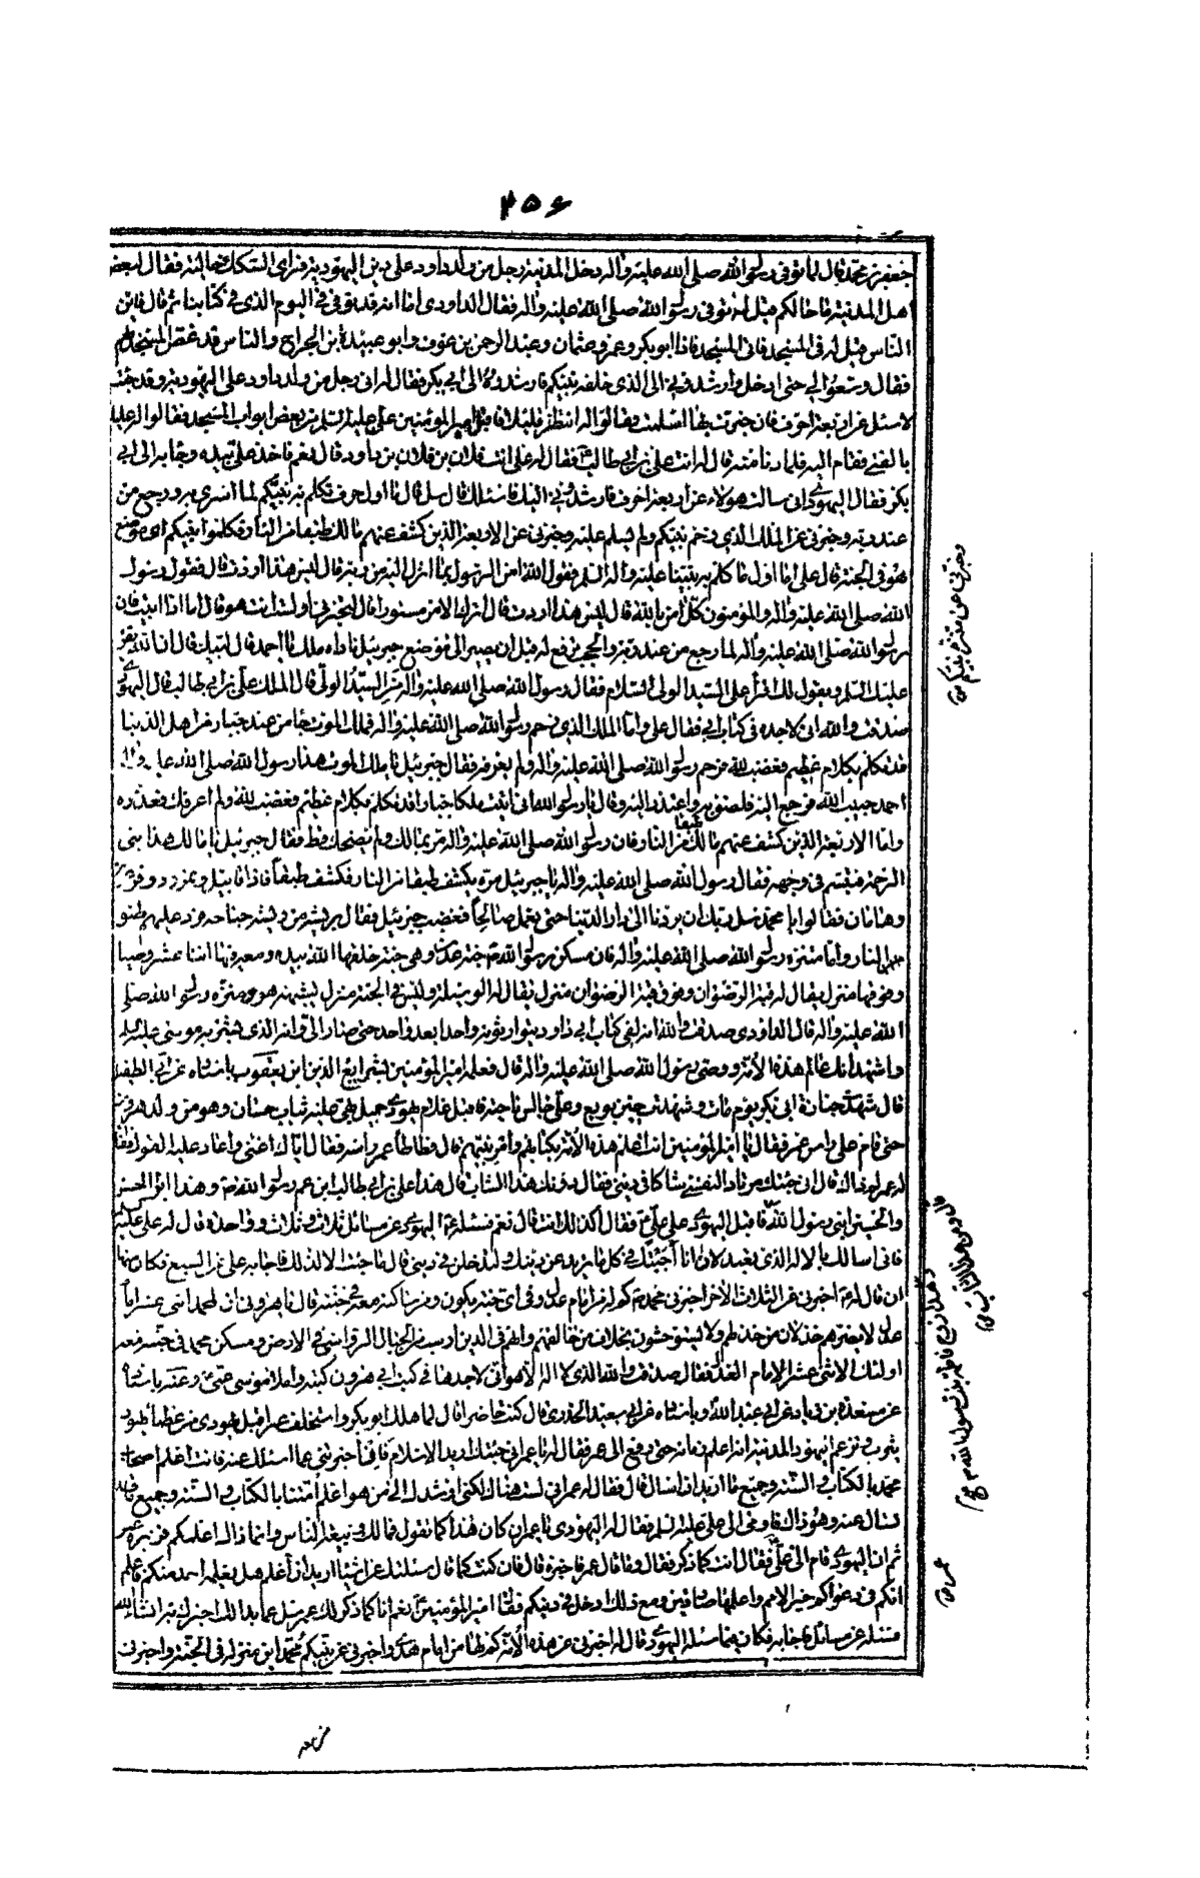 ٣٥۶
جعفر بن محمد قال لما توفى رسول الله صلى الله عليه واله دخل المدينة رجل من ولد داود على دين اليهودية فراى السكك خالية فقال لبعض
اهل المدينة ما حالكم فقيل له توفى رسول الله صلى الله عليه واله فقال الداودى اما انه قد توفى فى اليوم الذى فى كتابنا ثم قال فاين
الناس فقيل له فى المسجد فاتى المسجد فاذا ابو بكر وعمر وعثمان وعبد الرحمن بن عوف وابو عبيدة بن الجراح والناس قد غص المسجد بهم
فقال وسعوا لى حتى ادخل وارشدونى الى الذى خلفه نبيكم فارشدوه الى ابى بكر فقال له انى رجل من ولد داود على اليهودية وقد جئت
لاسئل عن اربعة احرف فان خبرت بها اسلمت فقالوا له انتظر قليلا فاقبل امير المؤمنين على عليه السلم من بعض ابواب المسجد فقالوا له عليك
بالفتى فقام اليه فلما دنا منه قال له انت على بن ابى طالب فقال له على انت فلان بن فلان بن داود قال نعم فاخذ على بيده وجاء به الى ابى
بكر فقال اليهودى انى سالت هولاء عن اربعة احرف فارشدونى اليك لاسئلك قال سل قال ما اول حرف تكلم به نبيكم لما اسرى به ورجع من
عند ربه وخبرنى عن الملك الذى زحم نبيكم ولم يسلم عليه وخبرنى عن الاربعة الذين كشف عنهم مالك طبقا من النار فكلموا نبيكم اى موضع
هو فى الجنة قال على اما اول ما كلم به نبينا عليه واله السلم فقول الله امن الرسول بما انزل اليه من ربه قال ليس هذا اردت قال فقول رسول
الله صلى الله عليه واله والمؤمنون كل امن بالله قال ليس هذا اردت قال اترك الامر مستورا قال لتخبرنى او لست انت هو قال اما اذا ابيت فان
رسول الله صلى الله عليه واله لما رجع من عند ربه والحجب ترفع له قبل ان يصير الى موضع جبرئيل ناداه ملك يا احمد قال لبيك قال ان الله يقرء
عليك السلم ويقول لك اقرا على السيد الولى السلام فقال رسول الله صلى الله عليه واله من السيد الولى قال الملك على بن ابى طالب قال اليهودى
صدقت والله انى لاجده فى كتاب ابى فقال على واما الملك الذى زحم رسول الله صلى الله عليه واله فملك الموت جاء من عند جبار من اهل الدنيا
قد تكلم بكلام عظيم فغضب لله فزحم رسول الله صلى الله عليه واله ولم يعرفه فقال جبرئيل يا ملك الموت هذا رسول الله صلى الله عليه واله
احمد حبيب الله فرجع اليه فلصق به واعتذر اليه وقال يا رسول الله انى اتيت ملكا جبارا قد تكلم بكلام عظيم فغضبت لله ولم اعرفك فعذره
واما الاربعة الذين كشف عنهم مالك طبقا من النار فان رسول الله صلى الله عليه واله مر بمالك ولم يضحك قط فقال جبرئيل يا مالك هذا نبى
الرحمة فتبسم فى وجهه فقال رسول الله صلى الله عليه واله يا جبرئيل مره يكشف طبقا من النار فكشف طبقا فاذا قابيل ونمرود وفرعون
وهامان فقالوا يا محمد سل ربك ان يردنا الى دار الدنيا حتى نعمل صالحا فغضب جبرئيل فقال بريشة من ريش جناحه فرد عليهم طبق
النار واما منبره رسول الله صلى الله عليه واله فان مسكن رسول الله ص جنة عدن وهى جنة خلقها الله بيده ومعه فيها اثنا عشر وصيا
وفوقها منزل يقال له قبة الرضوان وفوق قبة الرضوان منزل يقال له الوسيلة وليس فى الجنة منزل يشبهه هو منبر رسول الله صلى
الله عليه واله قال الداودى صدقت والله انه لفى كتاب ابى داود يتوارثونه واحدا بعد واحد حتى صار الى
واشهد انك عالم هذه الامة ووصى رسول الله صلى الله عليه واله قال فعلمه امير المؤمنين شرايع الدين ابن يعقوب باسناده عن ابى الطفيل
قال شهدت جنازة ابى بكر يوم مات وشهدت عمر حين بويع وعلى جالس ناحية فاقبل غلام يهودى جميل بهى عليه ثياب حسان وهو من ولد هرون
حتى قام على راس عمر فقال يا امير المؤمنين انت اعلم هذه الامة بكتابهم وامر نبيهم قال فطاطا عمر راسه فقال اياك اعنى واعاد عليه القول فقال
له عمر لم ذاك قال انى جئتك مرتادا لنفسى شاكا فى دينى فقال دونك هذا الشاب قال هذا على بن ابى طالب ابن عم رسول الله ص وهذا ابو الحسن
والحسين ابنى رسول الله فاقبل اليهودى على على فقال اكذلك انت قال نعم فسئله اليهودى عن مسائل ثلاث وثلاث وواحدة قال له على
فانى اسالك بالاله الذى تعبد لان انا اجبتك فى كل ما تريد عن دينك ولتدخلن فى دينى قال ما جئت الا لذلك فاجابه على عن السبع فكان منها
ان قال له اخبرنى عن الثلاث الاخر اخبرنى عن محمد كم له من امام عدل وفى اى جنة يكون ومن يساكنه معه فى جنته قال يا هرونى ان لمحمد اثنى عشر اماما
عدل لا يضرهم خذلان من خذلهم ولا يستوحشون بخلاف من خالفهم وانهم فى الدين ارسب من الجبال الرواسى فى الارض ومسكن محمد فى جنته معه
اولئك الاثنى عشر الامام العدل فقال صدقت والله الذى لا اله الا هو انى لاجدها فى كتب ابى هرون كتبه واملاء موسى عمى وعنه باسناده
عن مسعدة بن زياد عن ابى عبد الله وباسناده عن ابى سعيد الخدرى قال كنت حاضرا قال لما هلك ابو بكر واستخلف عمر اقبل يهودى من عظماء يهود
يثرب وتزعم يهود المدينة انه اعلم زمانه حتى رفع الى عمر فقال له يا عمر انى جئتك اريد الاسلام فان اخبرتنى عما اسئلك عنه فانت اعلم اصحاب
محمد بالكتاب والسنة وجميع ما اريد ان اسال قال فقال له عمر انى لست هناك لكنى ارشدك الى من هو اعلم امتنا بالكتاب والسنة وجميع ما قد
تسال عنه وهو ذاك فاومى الى على عليه السلم فقال له اليهودى يا عمر ان كان هذا كما تقول فمالك وبيعة الناس وانما ذاك اعلمكم فزبره عمر
ثم ان اليهودى قام الى على فقال انت كما ذكر فقال وما قال عمر فاخبره قال فان كنت كما قال سئلتك عن اشياء اريد ان اعلم هل يعلمه احد منكم فاعلم
انكم فى دعواكم خير الامم واعلمها صادقين ومع ذلك ادخل فى دينكم فقال امير المؤمنين نعم انا كما ذكر لك عمر سل عما بدا لك اخبرك به ان شاء الله
فسئله عن مسائل فاجابه فكان مما سئله اليهودى قال له اخبرنى عن هذه الامة كم لها من امام هدى واخبرنى عن نبيكم محمد اين منزله فى الجنة واخبرنى
وخبرنى عن منبر نبيكم